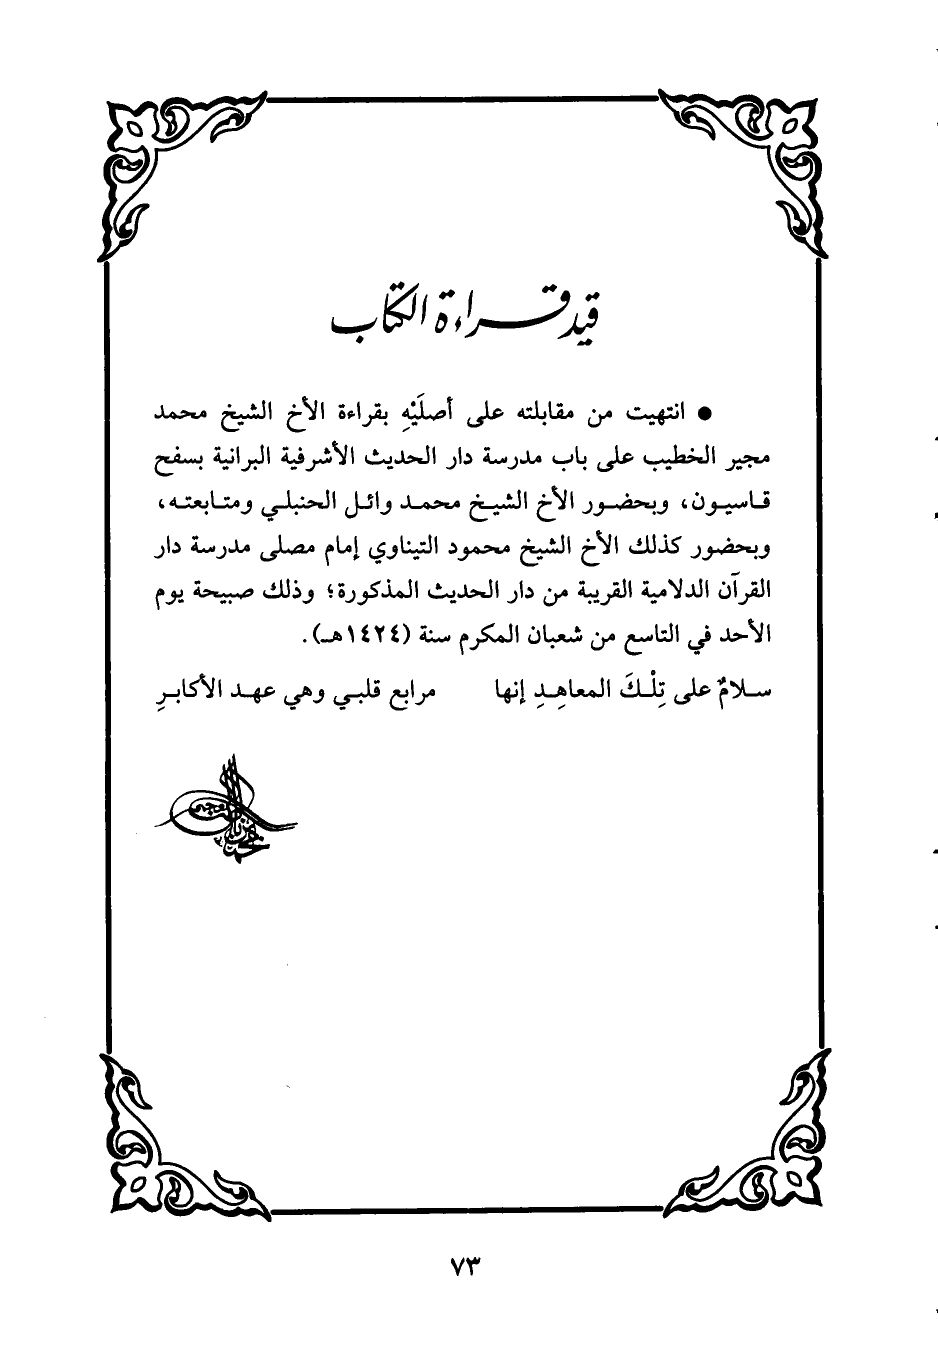 قيد قراءة الكتاب
● انتهيت من مقابلته على أصلَيْهِ بقراءة الأخ الشيخ محمد
مجير الخطيب على باب مدرسة دار الحديث الأشرفية البرانية بسفح
قاسيون، وبحضور الأخ الشيخ محمد وائل الحنبلي ومتابعته،
وبحضور كذلك الأخ الشيخ محمود التيناوي إمام مصلى مدرسة دار
القرآن الدلامية القريبة من دار الحديث المذكورة؛ وذلك صبيحة يوم
الأحد في التاسع من شعبان المكرم سنة (١٤٢٤هـ).
سلامٌ على تِلْكَ المعاهِدِ إنها مرابع قلبي وهي عهد الأكابرِ
٧٣